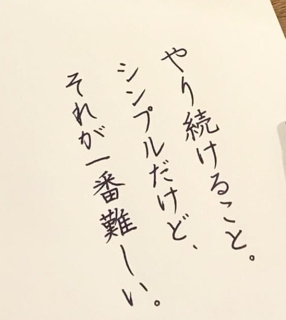 やり続けること。
シンプルだけど、
それが一番難しい。